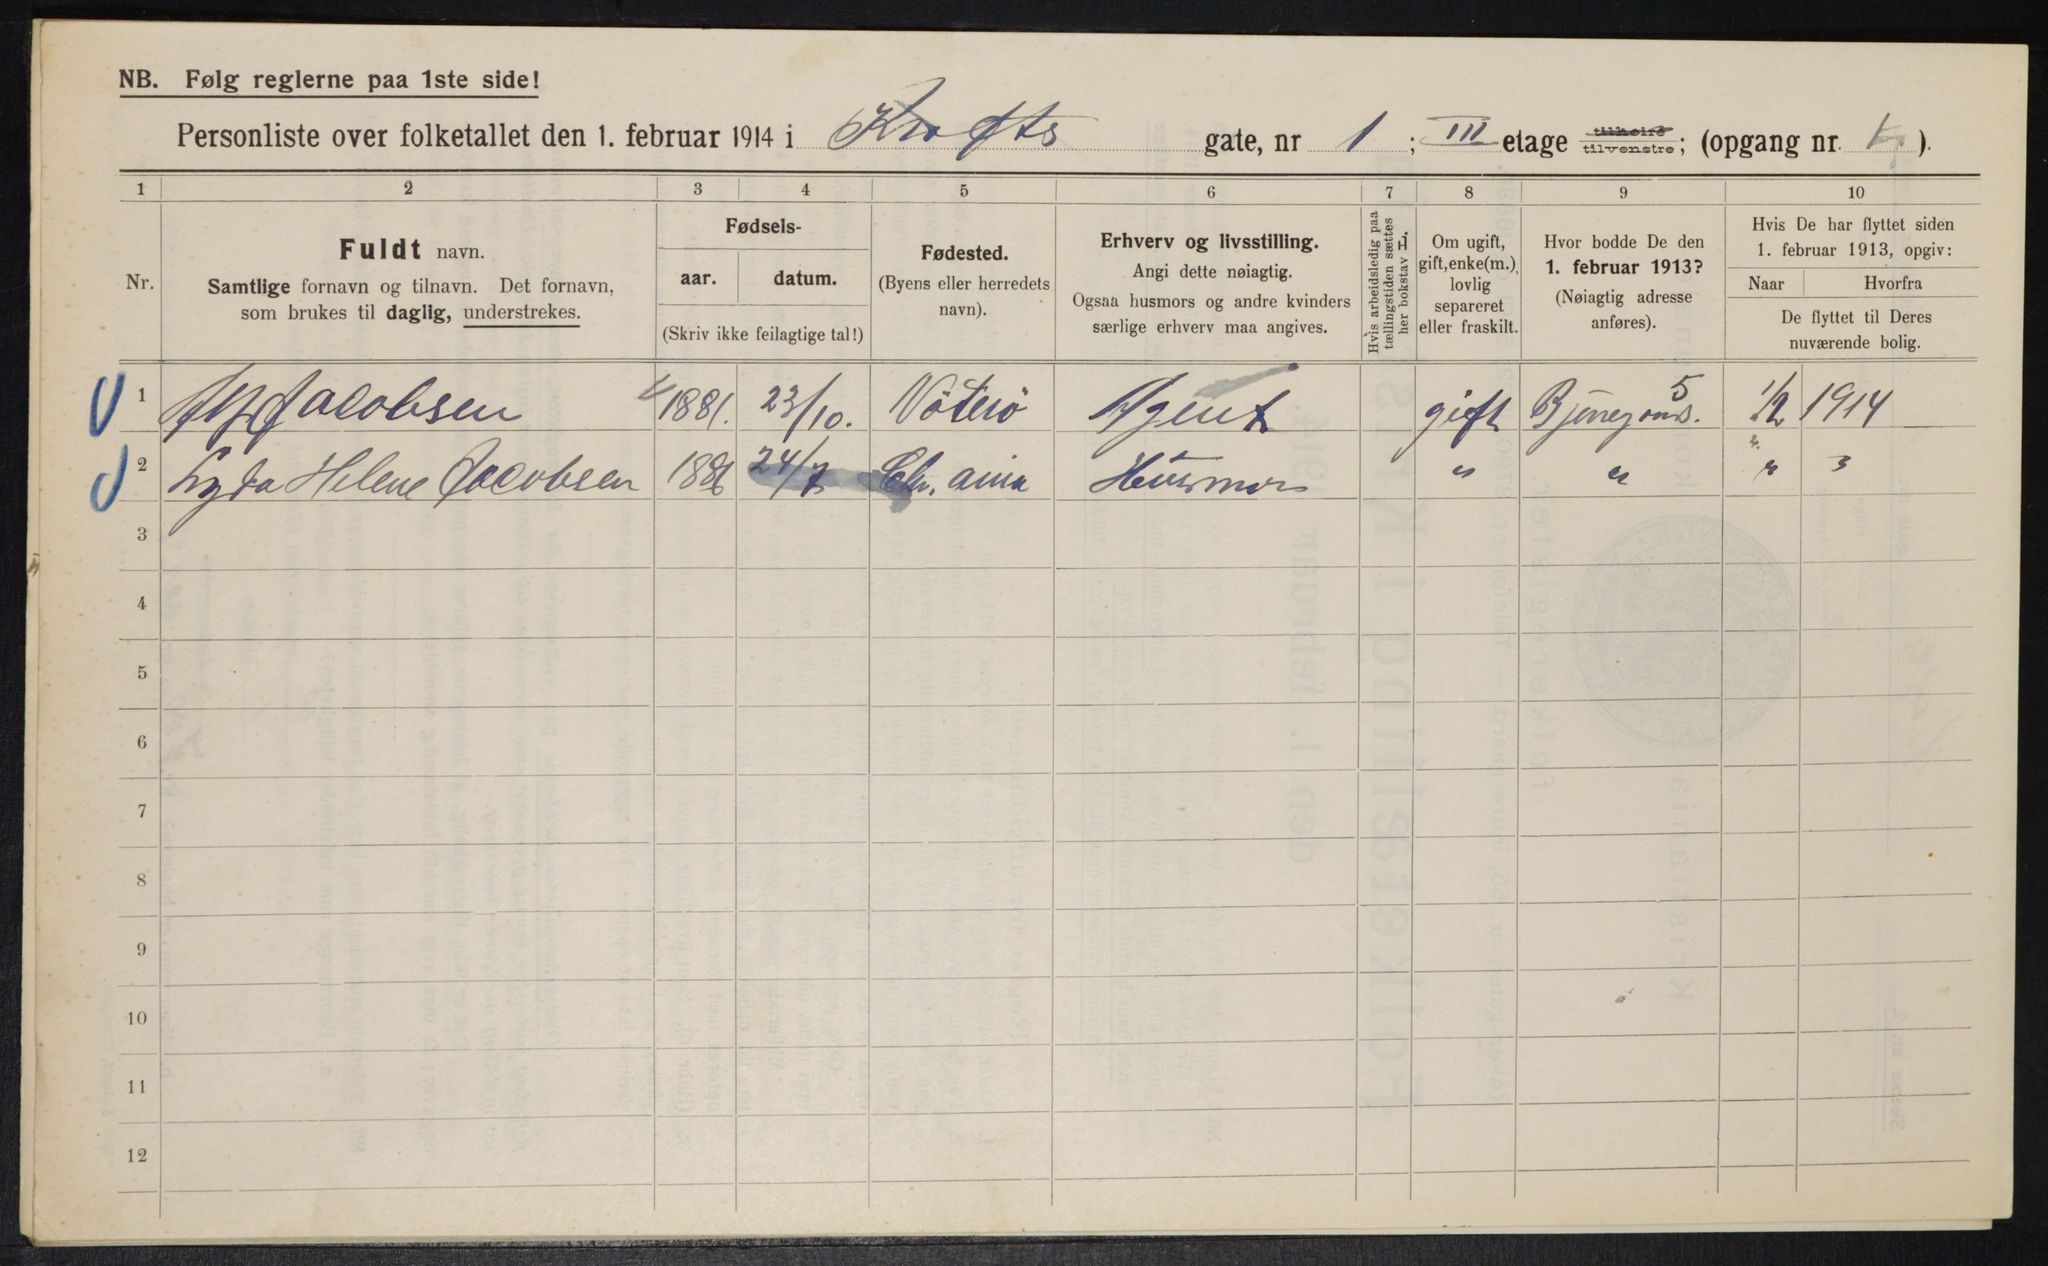 NB. Følg reglerne paa 1ste side!
Personliste over folketallet den 1. februar 1914 i Krafts gate, nr 1 ; III etage tilhøire tilvenstre; (opgang nr. ).
1 2 3 4 5 6 7 8 9 10
Nr.
Fuldt navn.
Samtlige fornavn og tilnavn. Det fornavn,
som brukes til daglig, understrekes.
Fødsels-
aar. datum.
(Skriv ikke feilagtige tal!)
Fødested.
(Byens eller herredets
navn).
Erhverv og livsstilling.
Angi dette nøiagtig.
Ogsaa husmors og andre kvinders
særlige erhverv maa angives.
Hvis arbeidsledig paa
tællingstiden sættes
her bokstav L.
Om ugift,
gift, enke(m.),
lovlig
separeret
eller fraskilt.
Hvor bodde De den
1. februar 1913?
(Nøiagtig adresse
anføres).
Hvis De har flyttet siden
1. februar 1913, opgiv:
Naar Hvorfra
De flyttet til Deres
nuværende bolig.
1 Jacobsen 1881. 23/10. Nöterö Agent gift 5 1/2 1914
2 Lyda Helene Jacobsen 1886 24/7 Chr.ania Husmor " " "
3
4
5
6
7
8
9
10
11
12